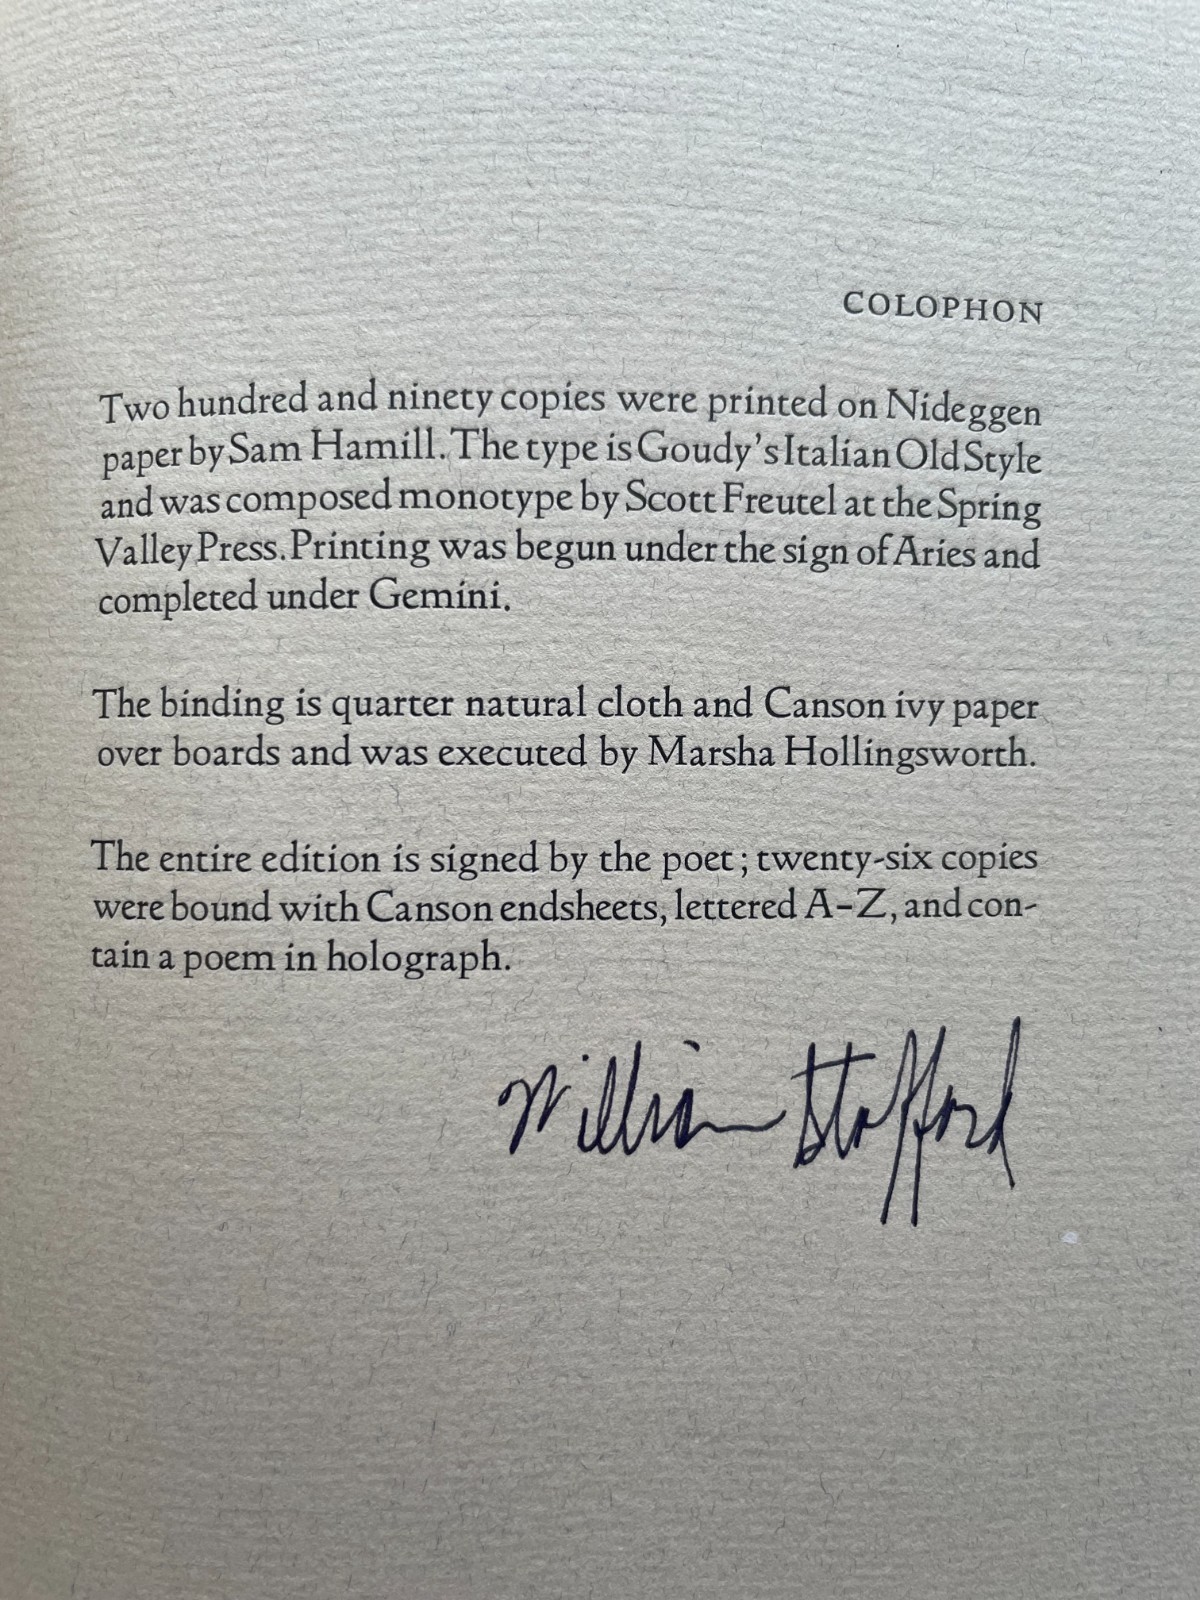 COLOPHON
Two hundred and ninety copies were printed on Nideggen
paper by Sam Hamill. The type is Goudy's Italian Old Style
and was composed monotype by Scott Freutel at the Spring
Valley Press. Printing was begun under the sign of Aries and
completed under Gemini.
The binding is quarter natural cloth and Canson ivy paper
over boards and was executed by Marsha Hollingsworth.
The entire edition is signed by the poet; twenty-six copies
were bound with Canson endsheets, lettered A–Z, and con-
tain a poem in holograph.
William Stafford